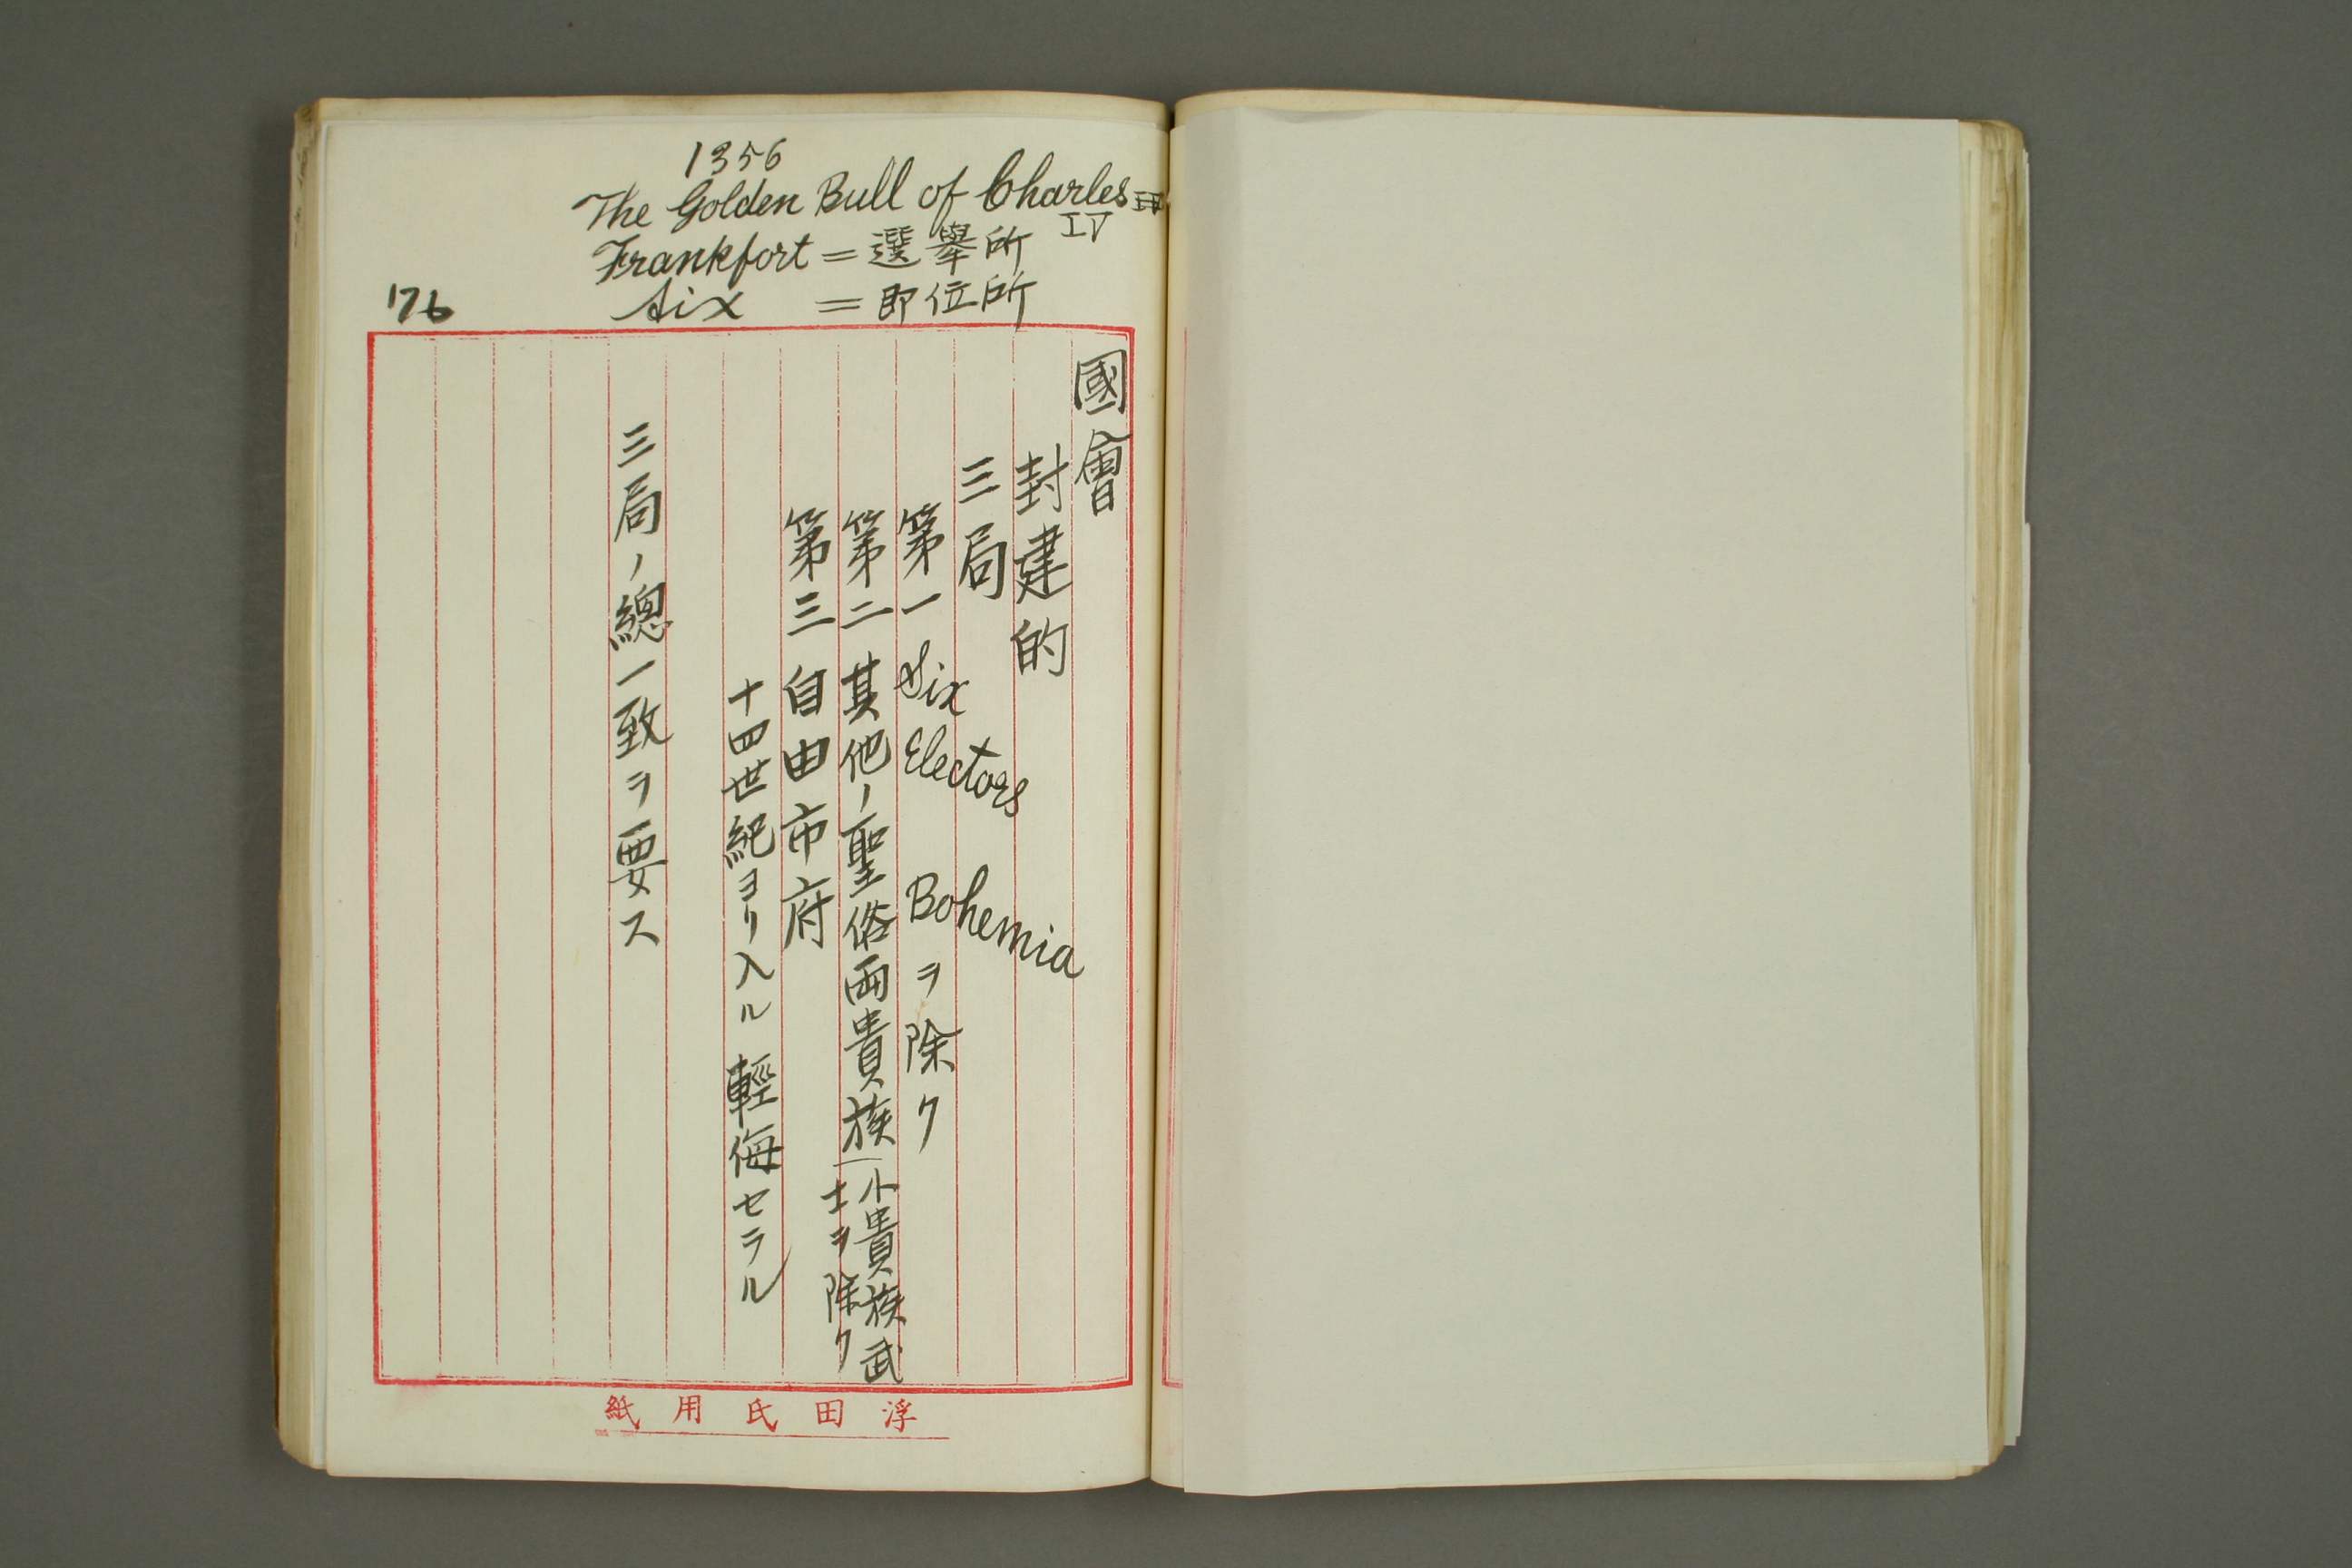 1356
The Golden Bull of Charles IV
Frankfort = 選擧所
Aix = 即位所
176
國會
封建的
三局
第一 Six Electors Bohemia ヲ除ク
第二 其他ノ聖俗両貴族(小貴族武
士ヲ除ク
第三 自由市府
十四世紀ヨリ入ル 輕侮セラル
三局ノ總一致ヲ要ス
紙用氏田浮